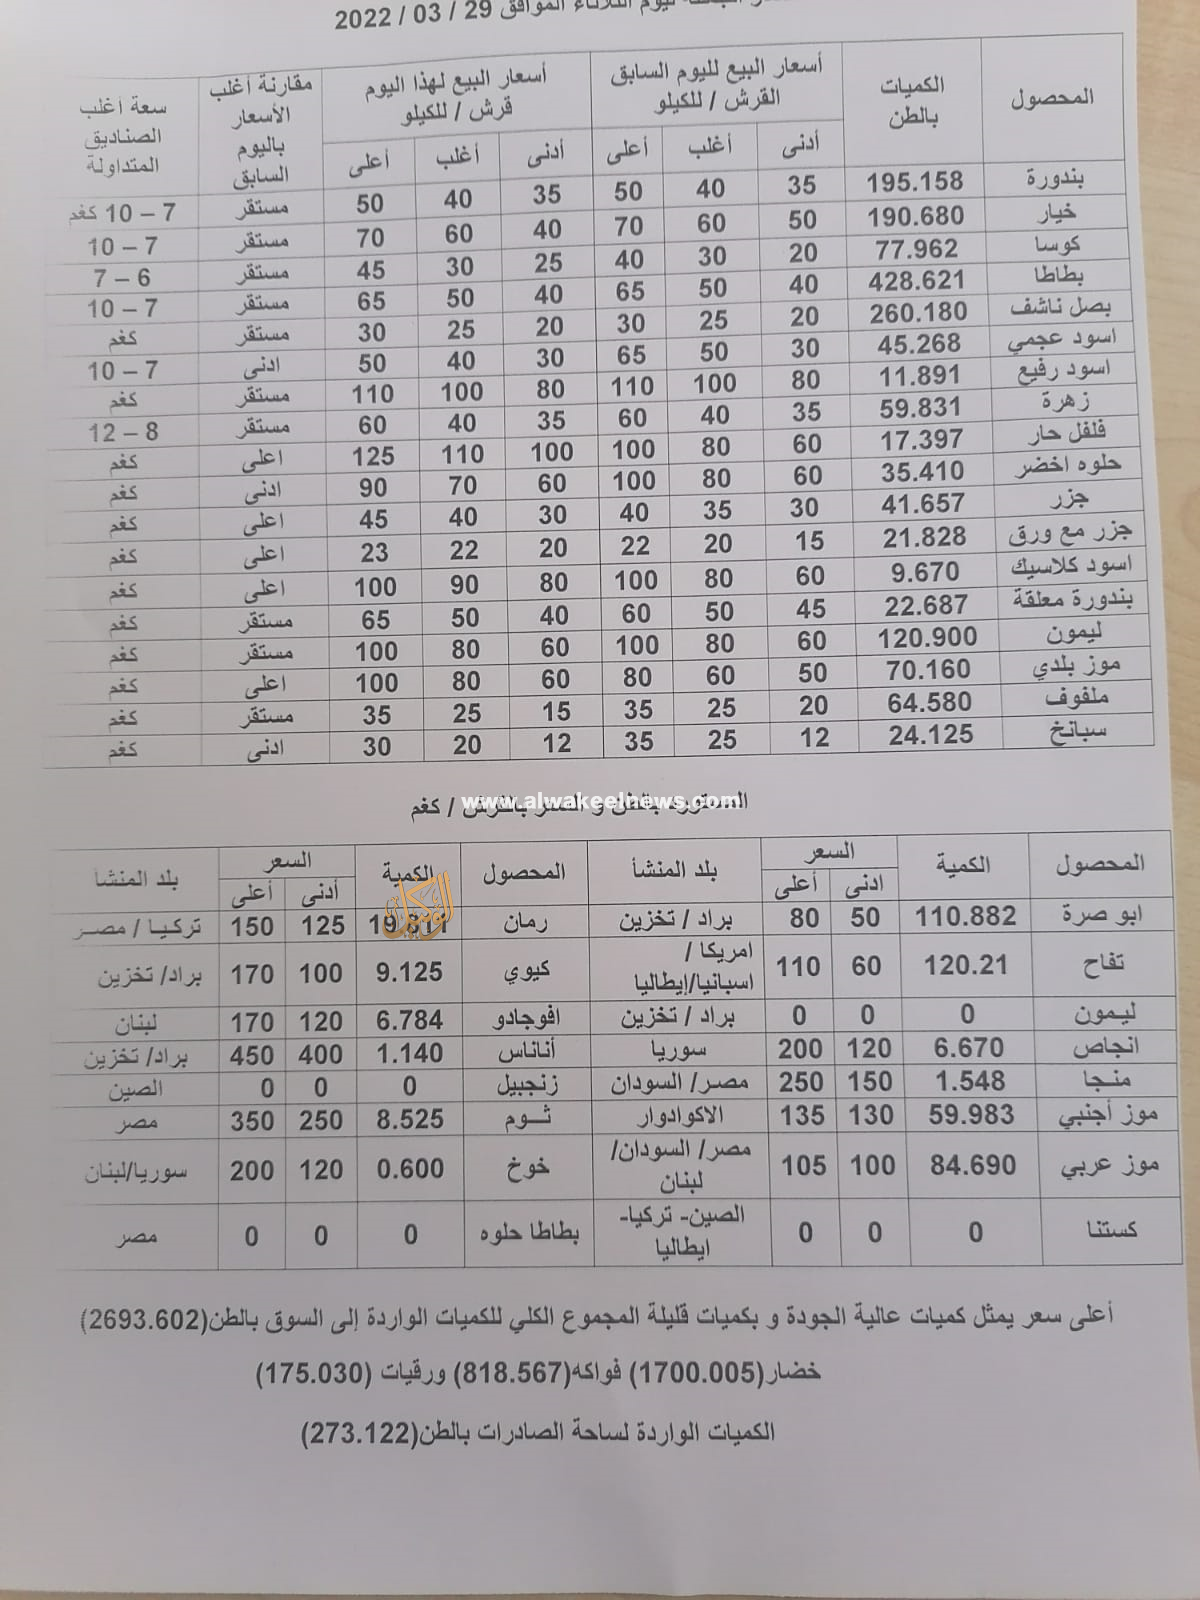 ليوم الثلاثاء الموافق 29 / 03 / 2022
المحصول الكميات بالطن أسعار البيع لليوم السابق القرش / للكيلو أسعار البيع لهذا اليوم قرش / للكيلو مقارنة أغلب الأسعار باليوم السابق سعة أغلب الصناديق المتداولة
أدنى أغلب أعلى أدنى أغلب أعلى
بندورة 195.158 35 40 50 35 40 50 مستقر 7 – 10 كغم
خيار 190.680 50 60 70 40 60 70 مستقر 7 – 10
كوسا 77.962 20 30 40 25 30 45 مستقر 6 – 7
بطاطا 428.621 40 50 65 40 50 65 مستقر 7 – 10
بصل ناشف 260.180 20 25 30 20 25 30 مستقر كغم
اسود عجمي 45.268 30 50 65 30 40 50 ادنى 7 – 10
اسود رفيع 11.891 80 100 110 80 100 110 مستقر كغم
زهرة 59.831 35 40 60 35 40 60 مستقر 8 – 12
فلفل حار 17.397 60 80 100 100 110 125 اعلى كغم
حلوه اخضر 35.410 60 80 100 60 70 90 ادنى كغم
جزر 41.657 30 35 40 30 40 45 اعلى كغم
جزر مع ورق 21.828 15 20 22 20 22 23 اعلى كغم
اسود كلاسيك 9.670 60 80 100 80 90 100 اعلى كغم
بندورة معلقة 22.687 45 50 60 40 50 65 مستقر كغم
ليمون 120.900 60 80 100 60 80 100 مستقر كغم
موز بلدي 70.160 50 60 80 60 80 100 اعلى كغم
ملفوف 64.580 20 25 35 15 25 35 مستقر كغم
سبانخ 24.125 12 25 35 12 20 30 ادنى كغم
بالطن و السعر بالقرش / كغم
www.alwakeelnews.com
المحصول الكمية السعر بلد المنشأ المحصول الكمية السعر بلد المنشأ
ادنى أعلى أدنى أعلى
ابو صرة 110.882 50 80 براد / تخزين رمان 125 150 تركيا / مصر
تفاح 120.21 60 110 امريكا / اسبانيا/إيطاليا كيوي 9.125 100 170 براد/ تخزين
ليمون 0 0 0 براد / تخزين افوجادو 6.784 120 170 لبنان
انجاص 6.670 120 200 سوريا أناناس 1.140 400 450 براد/ تخزين
منجا 1.548 150 250 مصر/ السودان زنجبيل 0 0 0 الصين
موز أجنبي 59.983 130 135 الاكوادوار ثوم 8.525 250 350 مصر
موز عربي 84.690 100 105 مصر/ السودان/ لبنان خوخ 0.600 120 200 سوريا/لبنان
كستنا 0 0 0 الصين- تركيا- ايطاليا بطاطا حلوه 0 0 0 مصر
الوكيل
أعلى سعر يمثل كميات عالية الجودة و بكميات قليلة المجموع الكلي للكميات الواردة إلى السوق بالطن(2693.602)
خضار(1700.005) فواكه(818.567) ورقيات (175.030)
الكميات الواردة لساحة الصادرات بالطن(273.122)